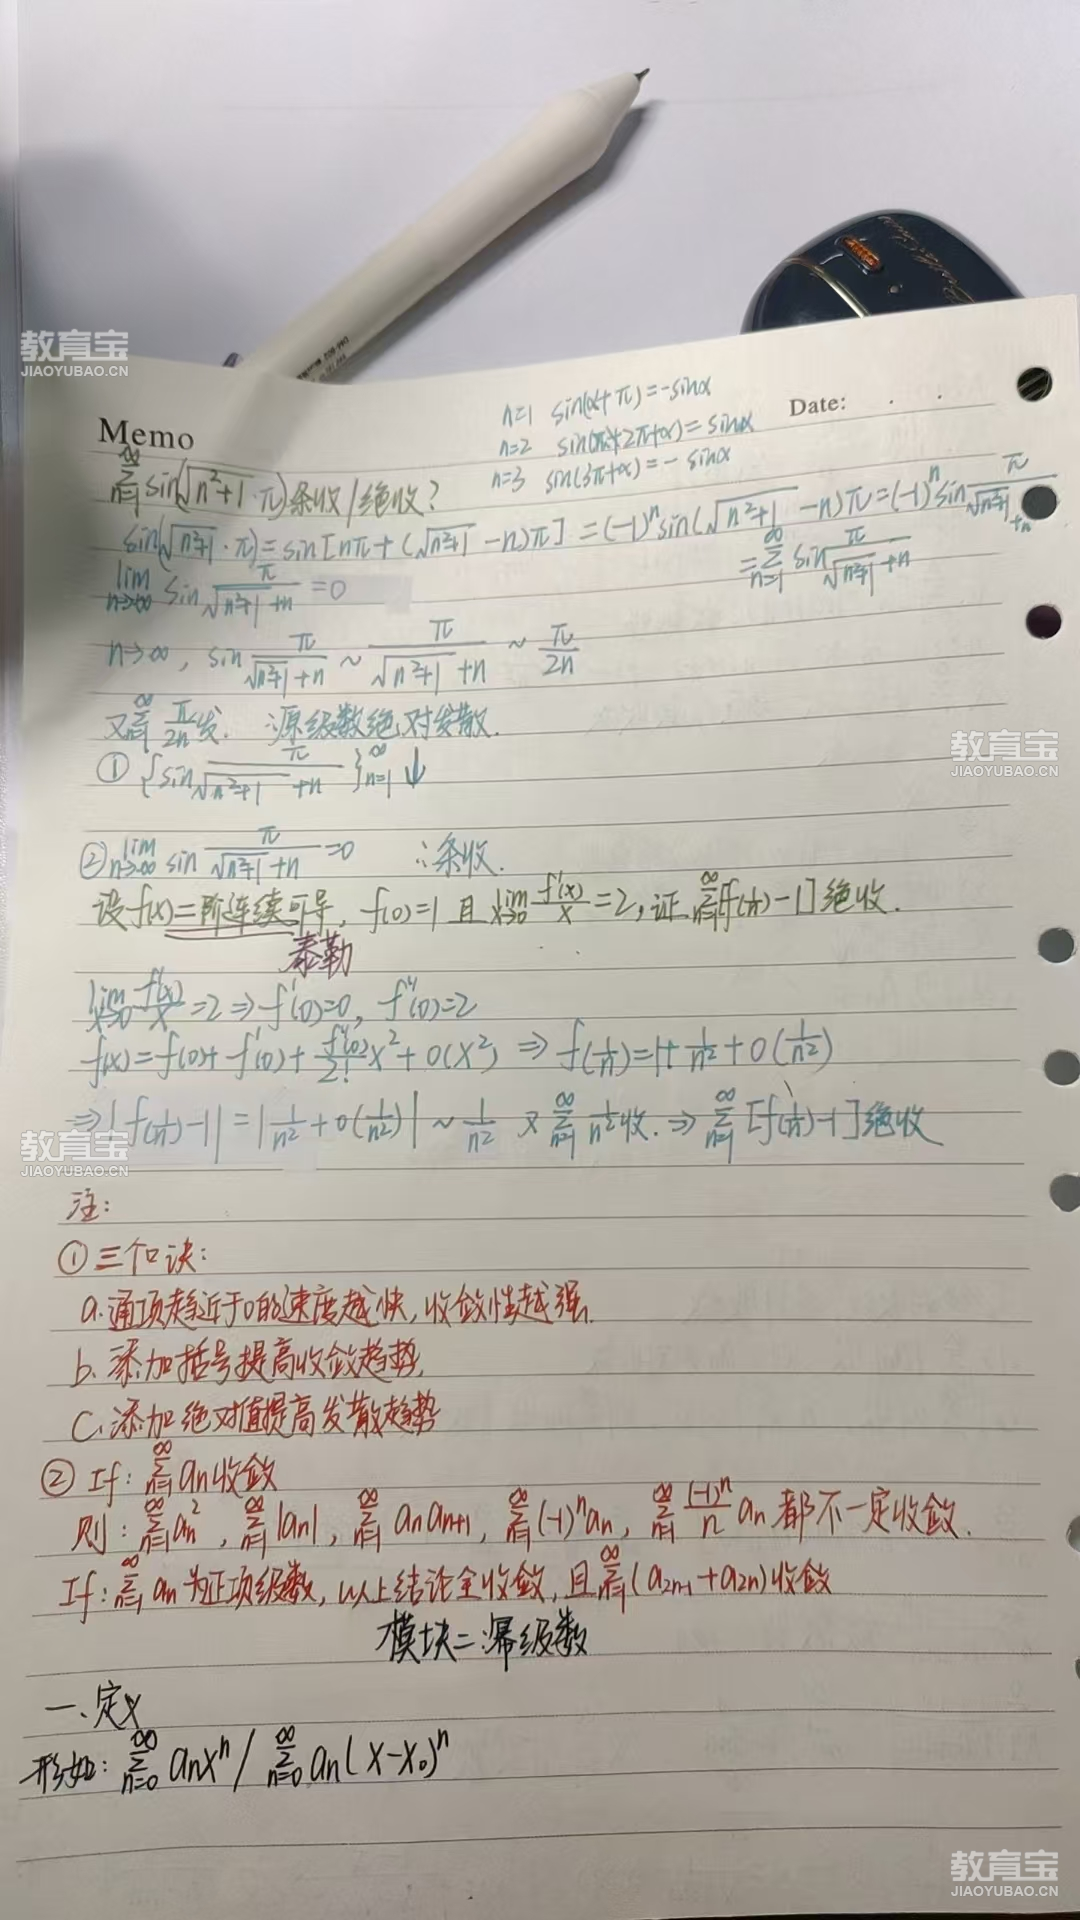 教育宝
JIAOYUBAO.CN
Memo
Date: . .
n=1 sin(α+π)=-sinα
n=2 sin(2π+α)=sinα
n=3 sin(3π+α)=-sinα
∑_{n=1}^{∞} sin(√(n²+1)·π) 条收/绝收?
sin(√(n²+1)·π)=sin[nπ+(√(n²+1)-n)π]=(-1)^n sin(√(n²+1)-n)π=(-1)^n sin π/(√(n²+1)+n)
=∑_{n=1}^{∞} sin π/(√(n²+1)+n)
lim_{n→∞} sin π/(√(n²+1)+n)=0
n→∞, sin π/(√(n²+1)+n) ~ π/(√(n²+1)+n) ~ π/2n
又∑_{n=1}^{∞} π/2n 发. ∴原级数绝对发散.
① {sin π/(√(n²+1)+n)}_{n=1}^{∞}↓
教育宝
JIAOYUBAO.CN
② lim_{n→∞} sin π/(√(n²+1)+n)=0 ∴条收.
设f(x)二阶连续可导, f(0)=1 且 lim_{x→0} f'(x)/x=2, 证∑_{n=1}^{∞}[f(1/n)-1]绝收.
泰勒
lim_{x→0} f'(x)/x=2⇒f'(0)=0, f''(0)=2
f(x)=f(0)+f'(0)+f''(0)/2! x²+o(x²) ⇒ f(1/n)=1+1/n²+o(1/n²)
⇒|f(1/n)-1|=|1/n²+o(1/n²)|~1/n² 又∑_{n=1}^{∞} 1/n²收.⇒∑_{n=1}^{∞}[f(1/n)-1]绝收
教育宝
JIAOYUBAO.CN
注:
①三个口诀:
a.通项趋近于0的速度越快,收敛性越强.
b.添加括号提高收敛趋势.
c.添加绝对值提高发散趋势
② If: ∑_{n=1}^{∞} an收敛
则: ∑_{n=1}^{∞} an², ∑_{n=1}^{∞} |an|, ∑_{n=1}^{∞} an an+1, ∑_{n=1}^{∞} (-1)^n an, ∑_{n=1}^{∞} (-1)^n/n an 都不一定收敛.
If: ∑_{n=1}^{∞} an为正项级数, 以上结论全收敛, 且∑_{n=1}^{∞}(a2n-1+a2n)收敛
模块二:幂级数
一、定义
形如: ∑_{n=0}^{∞} anx^n / ∑_{n=0}^{∞} an(x-x₀)^n
教育宝
JIAOYUBAO.CN